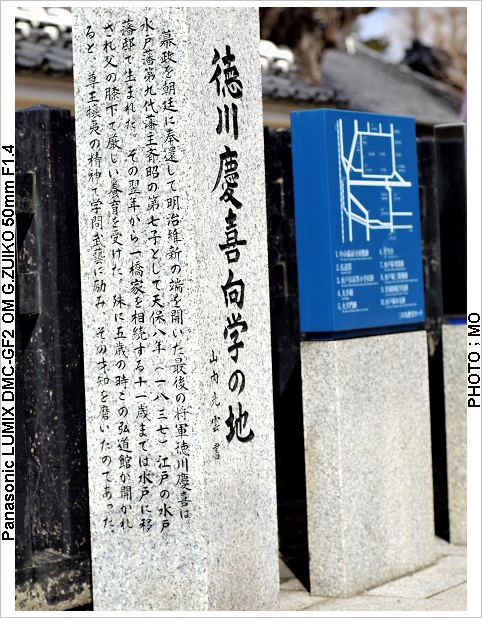 徳川慶喜向学の地
山内光雲書
幕政を朝廷に奉還して明治維新の端を開いた最後の将軍徳川慶喜は
水戸藩第九代藩主斉昭の第七子として天保八年(一八三七)江戸の水戸
藩邸で生まれた。その翌年から一橋家を相続する十一歳までは水戸に移
され父の膝下で厳しい養育を受けた。殊に五歳の時この弘道館が開かれ
ると、尊王攘夷の精神で学問武藝に励み、その才知を磨いたのであった。
Panasonic LUMIX DMC-GF2 OM G.ZUIKO 50mm F1.4
PHOTO ; MO